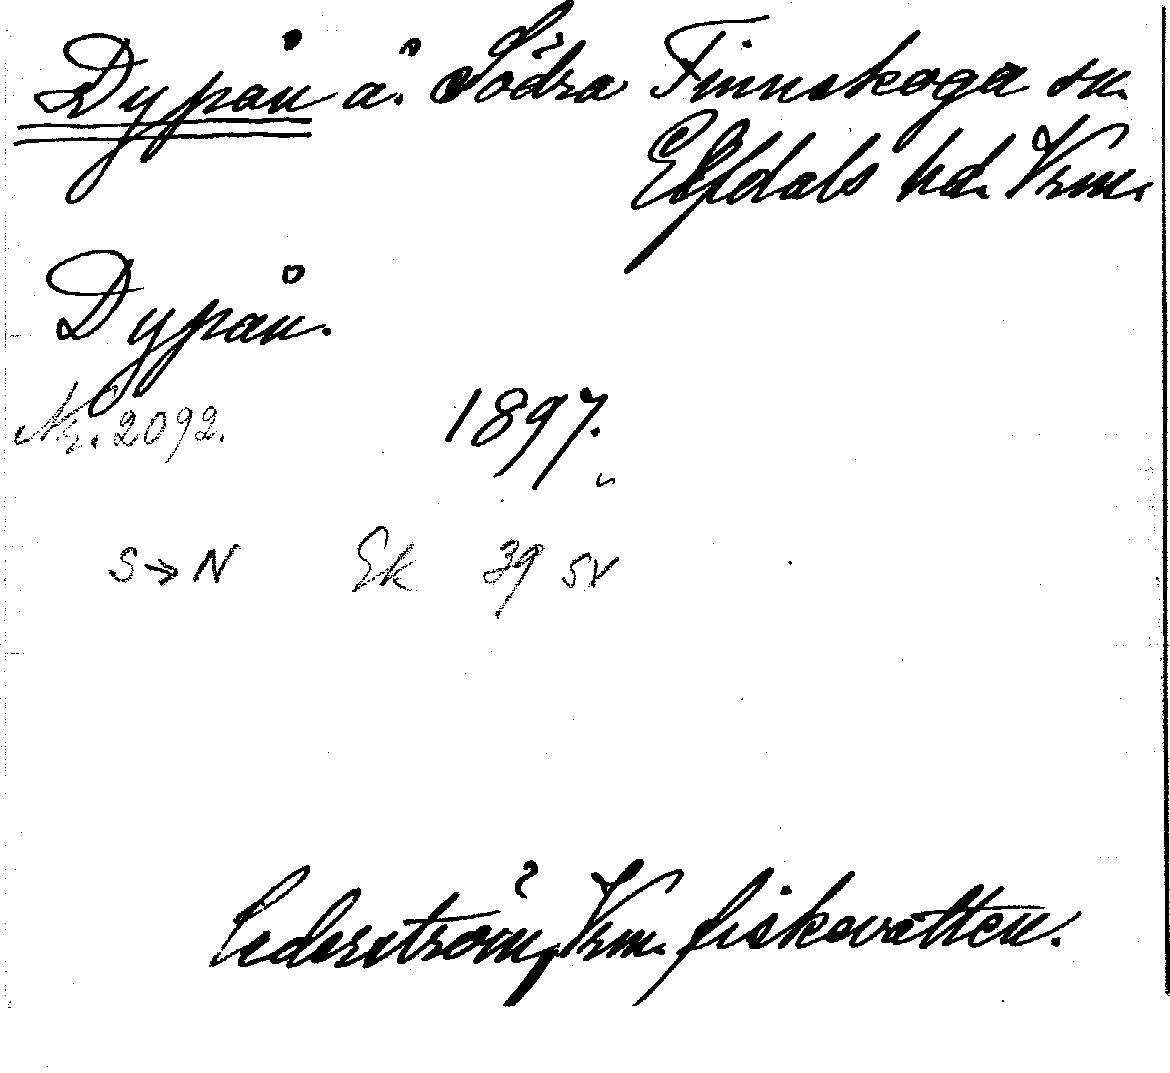 Dypån å. Södra Finnskoga sn.
Elfdals hd. Vrm.
Dypån.
Nr. 2092. 1897.
S→N Ek 39 SV
Cederström, Vrm. fiskevatten.